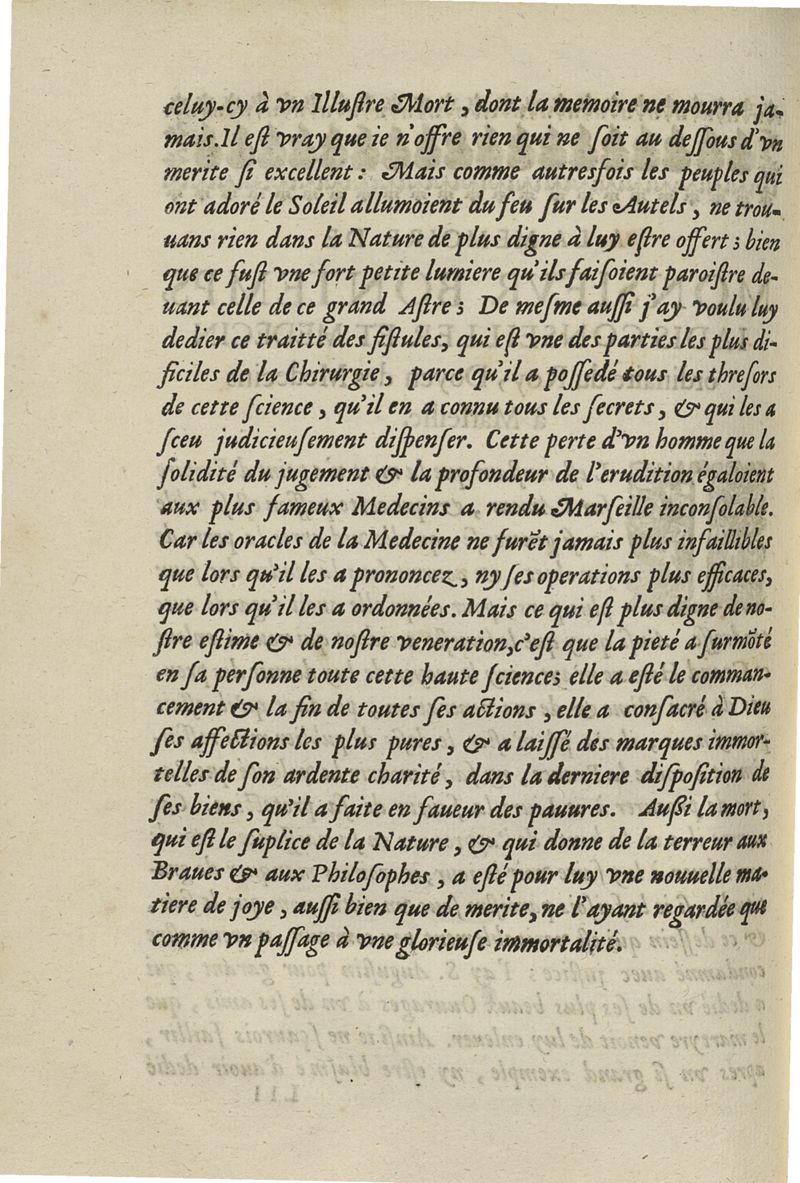 celuy-cy à vn Illuſtre Mort, dont la memoire ne mourra ja-
mais. Il eſt vray que ie n'offre rien qui ne ſoit au deſſous d'vn
merite ſi excellent : Mais comme autresfois les peuples qui
ont adoré le Soleil allumoient du feu ſur les Autels, ne trou-
uans rien dans la Nature de plus digne à luy eſtre offert ; bien
que ce fuſt vne fort petite lumiere qu'ils faiſoient paroiſtre de-
uant celle de ce grand Aſtre ; De meſme auſſi j'ay voulu luy
dedier ce traitté des fiſtules, qui eſt vne des parties les plus di-
ficiles de la Chirurgie, parce qu'il a poſſedé tous les threſors
de cette ſcience, qu'il en a connu tous les ſecrets, & qui les a
ſceu judicieuſement diſpenſer. Cette perte d'vn homme que la
ſolidité du jugement & la profondeur de l'erudition égaloient
aux plus fameux Medecins a rendu Marſeille inconſolable.
Car les oracles de la Medecine ne furẽt jamais plus infaillibles
que lors qu'il les a prononcez, ny ſes operations plus efficaces,
que lors qu'il les a ordonnées. Mais ce qui eſt plus digne de no-
ſtre eſtime & de noſtre veneration, c'eſt que la pieté a ſurmõté
en ſa perſonne toute cette haute ſcience; elle a eſté le comman-
cement & la fin de toutes ſes actions, elle a conſacré à Dieu
ſes affections les plus pures, & a laiſſé des marques immor-
telles de ſon ardente charité, dans la derniere diſpoſition de
ſes biens, qu'il a faite en faueur des pauures. Außi la mort,
qui eſt le ſuplice de la Nature, & qui donne de la terreur aux
Braues & aux Philoſophes, a eſté pour luy vne nouuelle ma-
tiere de joye, auſſi bien que de merite, ne l'ayant regardée que
comme vn paſſage à vne glorieuſe immortalité.